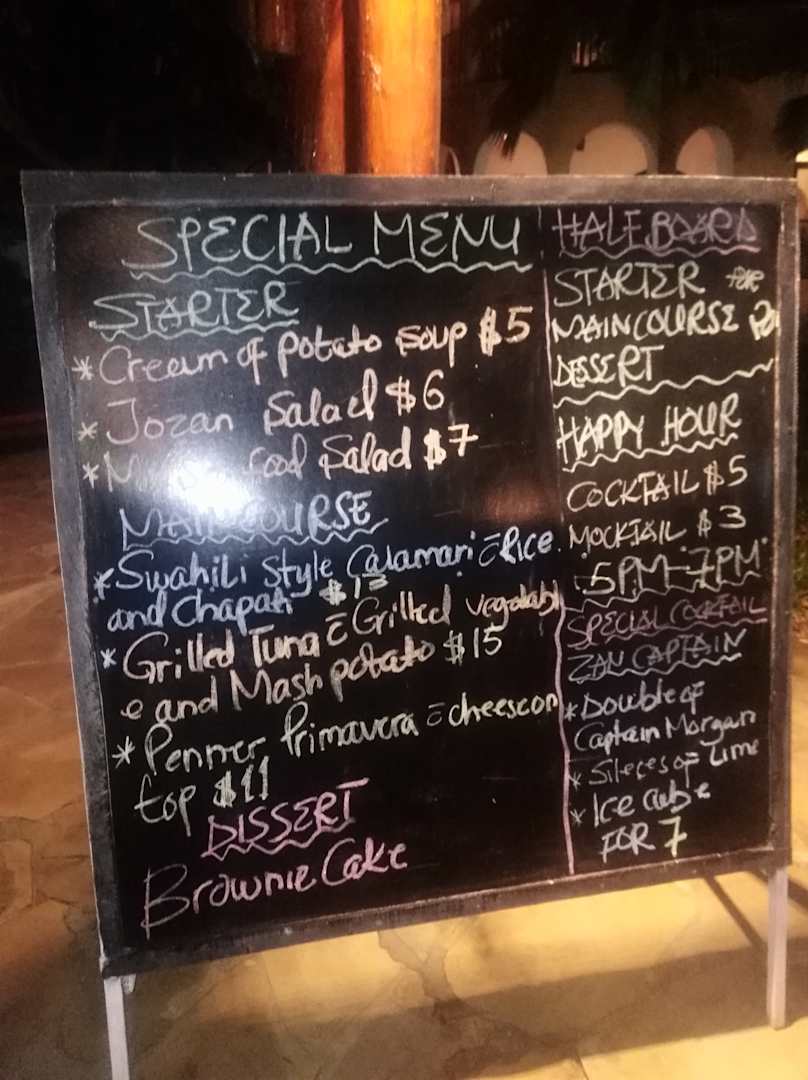 SPECIAL MENU
STARTER
* Cream of potato soup $5
* Jozan Salad $6
* food Salad $7
MAIN COURSE
* Swahili Style Calamari c̄ Rice
and Chapati $13
* Grilled Tuna c̄ Grilled vegetabl
e and Mash potato $15
* Penner Primavera c̄ chees on
top $11
DISSERT
Brownie Cake
HALF BOARD
STARTER
MAIN COURSE
DESSERT
HAPPY HOUR
COCKTAIL $5
MOCKTAIL $3
5PM-7PM
SPECIAL COCKTAIL
ZAN CAPTAIN
* Double of
Captain Morgan
* Sileces of Lime
* Ice cube
FOR 7